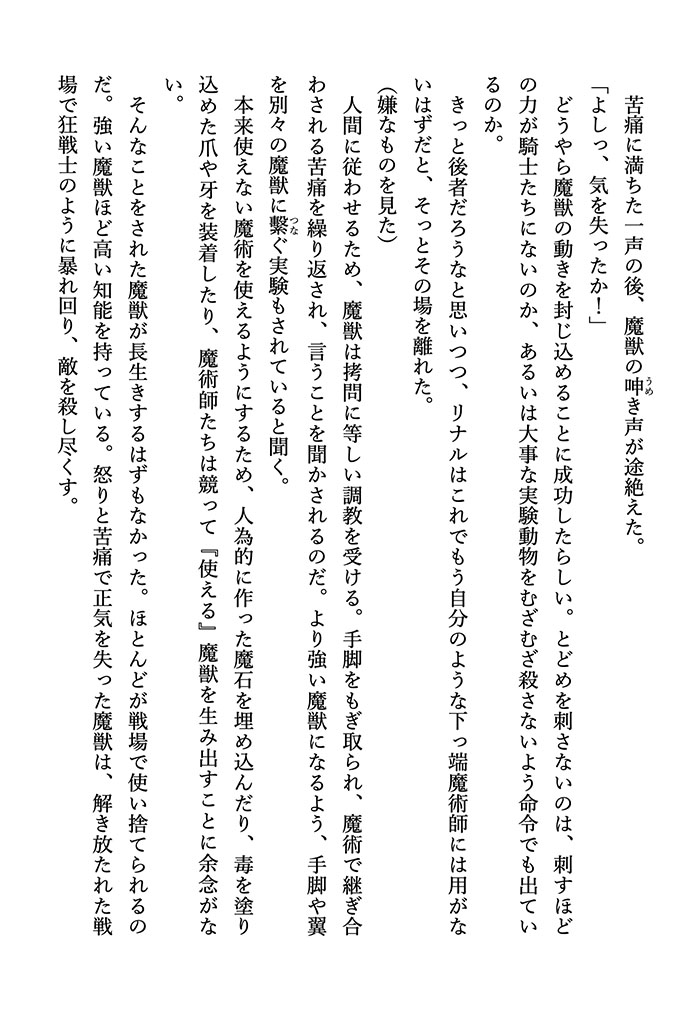 苦痛に満ちた一声の後、魔獣の呻き声が途絶えた。
「よしっ、気を失ったか！」
どうやら魔獣の動きを封じ込めることに成功したらしい。とどめを刺さないのは、刺すほど
の力が騎士たちにないのか、あるいは大事な実験動物をむざむざ殺さないよう命令でも出てい
るのか。
きっと後者だろうなと思いつつ、リナルはこれでもう自分のような下っ端魔術師には用がな
いはずだと、そっとその場を離れた。
（嫌なものを見た）
人間に従わせるため、魔獣は拷問に等しい調教を受ける。手脚をもぎ取られ、魔術で継ぎ合
わされる苦痛を繰り返され、言うことを聞かされるのだ。より強い魔獣になるよう、手脚や翼
を別々の魔獣に繋ぐ実験もされていると聞く。
本来使えない魔術を使えるようにするため、人為的に作った魔石を埋め込んだり、毒を塗り
込めた爪や牙を装着したり、魔術師たちは競って『使える』魔獣を生み出すことに余念がな
い。
そんなことをされた魔獣が長生きするはずもなかった。ほとんどが戦場で使い捨てられるの
だ。強い魔獣ほど高い知能を持っている。怒りと苦痛で正気を失った魔獣は、解き放たれた戦
場で狂戦士のように暴れ回り、敵を殺し尽くす。